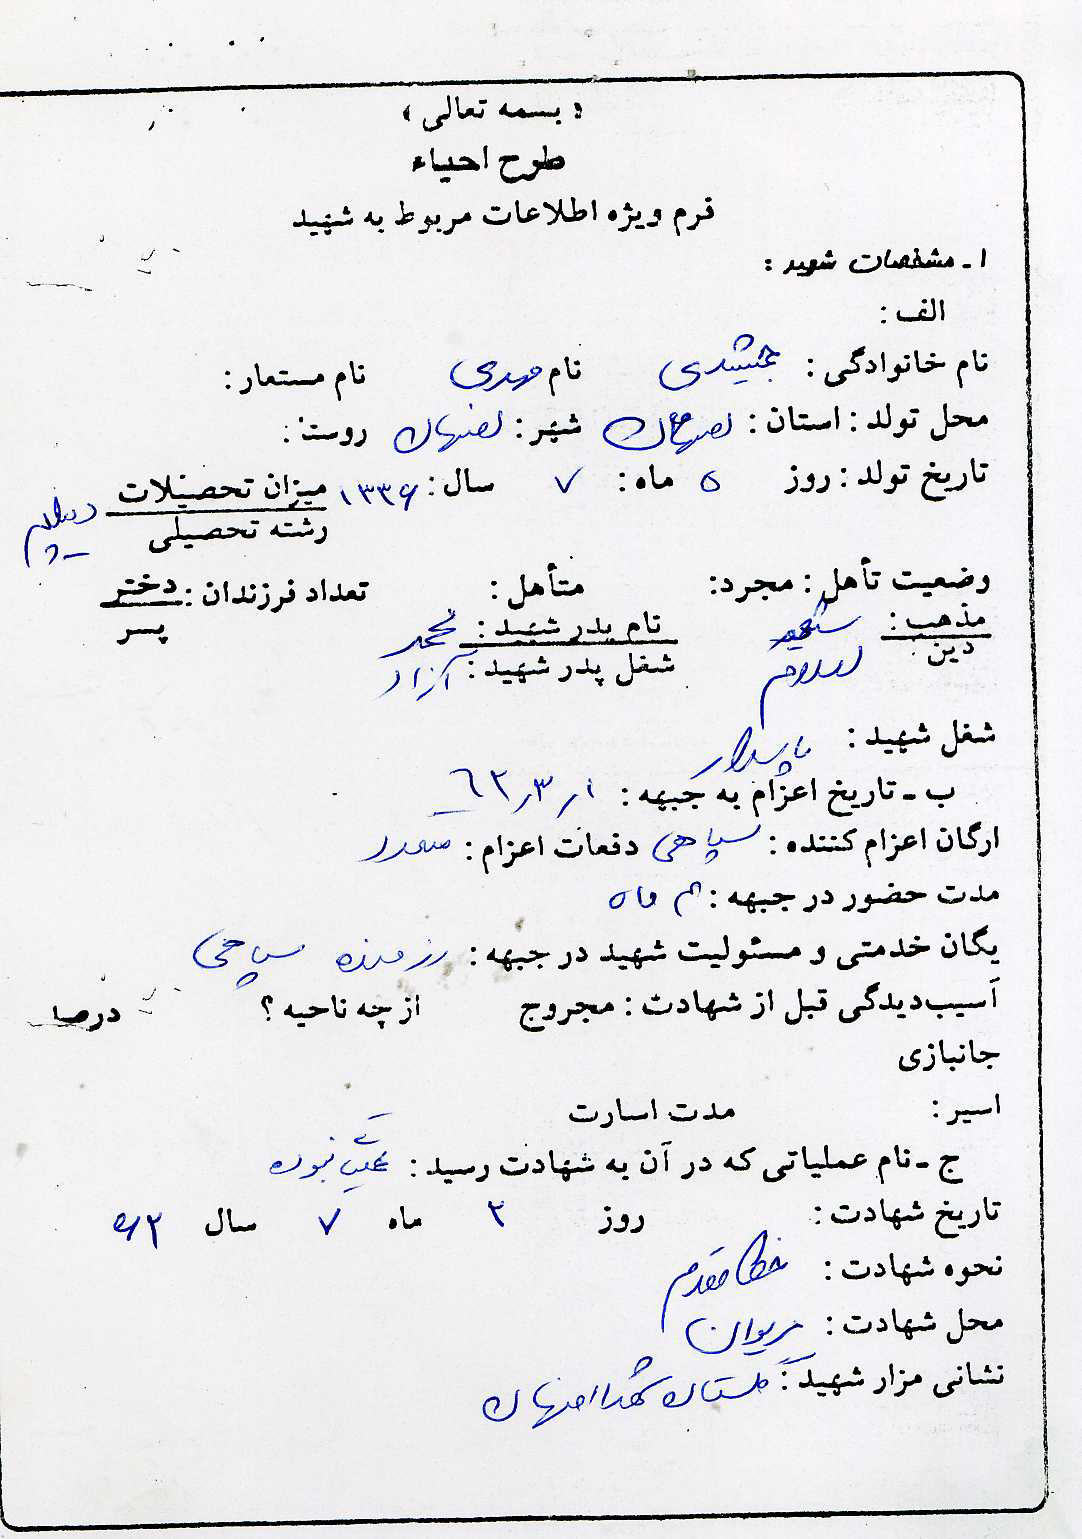 «بسمه تعالی»
طرح احیاء
فرم ویژه اطلاعات مربوط به شهید
۱ـ مشخصات شهید :
الف :
نام خانوادگی : جمشیدی نام مهدی نام مستعار :
محل تولد : استان : اصفهان شهر : اصفهان روستا :
تاریخ تولد : روز ۵ ماه : ۷ سال : ۱۳۳۶ میزان تحصیلات دیپلم
رشته تحصیلی
وضعیت تأهل : مجرد : متأهل : تعداد فرزندان : دختر
پسر
مذهب : شیعه نام پدر شهید : محمد
دین : اسلام شغل پدر شهید : آزاد
شغل شهید : پاسدار
ب ـ تاریخ اعزام به جبهه : ۱ر۳ر۶۲
ارگان اعزام کننده : سپاهی دفعات اعزام :
مدت حضور در جبهه : ماه
یگان خدمتی و مسئولیت شهید در جبهه : رزمنده سپاهی
آسیب‌دیدگی قبل از شهادت : مجروح از چه ناحیه ؟ درصد
جانبازی
اسیر : مدت اسارت
ج ـ نام عملیاتی که در آن به شهادت رسید : نبوده
تاریخ شهادت : روز ۳ ماه ۷ سال ۶۲
نحوه شهادت : خط مقدم
محل شهادت : مریوان
نشانی مزار شهید : گلستان شهدا اصفهان